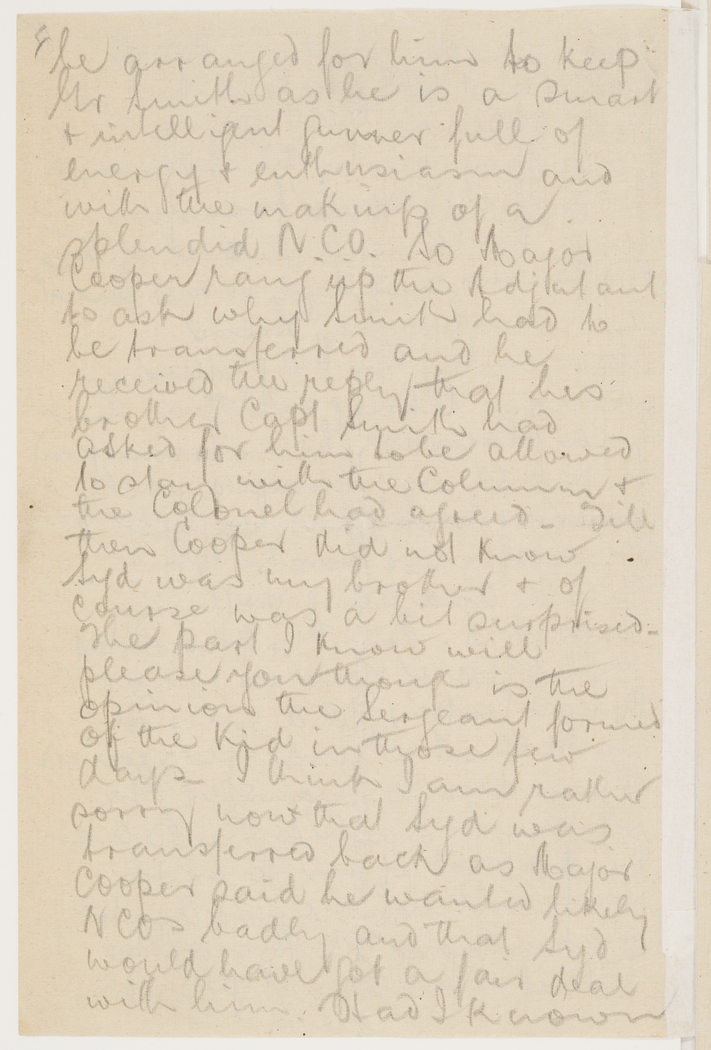 be arranged for him to keep
Gr Smith as he is a smart
& intelligent gunner full of
energy & enthusiasm and
with the makings of a
splendid N.C.O. So Major
Cooper rang up the Adjutant
to ask why Smith had to
be transferred and he
received the reply that his
brother Capt Smith had
asked for him to be allowed
to stay with the Column &
the Colonel had agreed - Till
then Cooper did not know
Syd was my brother & of
course was a bit surprised -
The part I know will
please you though is the
opinion the Sergeant formed
of the Kid in those few
days - I think I am rather
sorry now that Syd was
transferred back as Major
Cooper said he wanted likely
NCOs badly and that Syd
would have got a fair deal
with him. Had I known